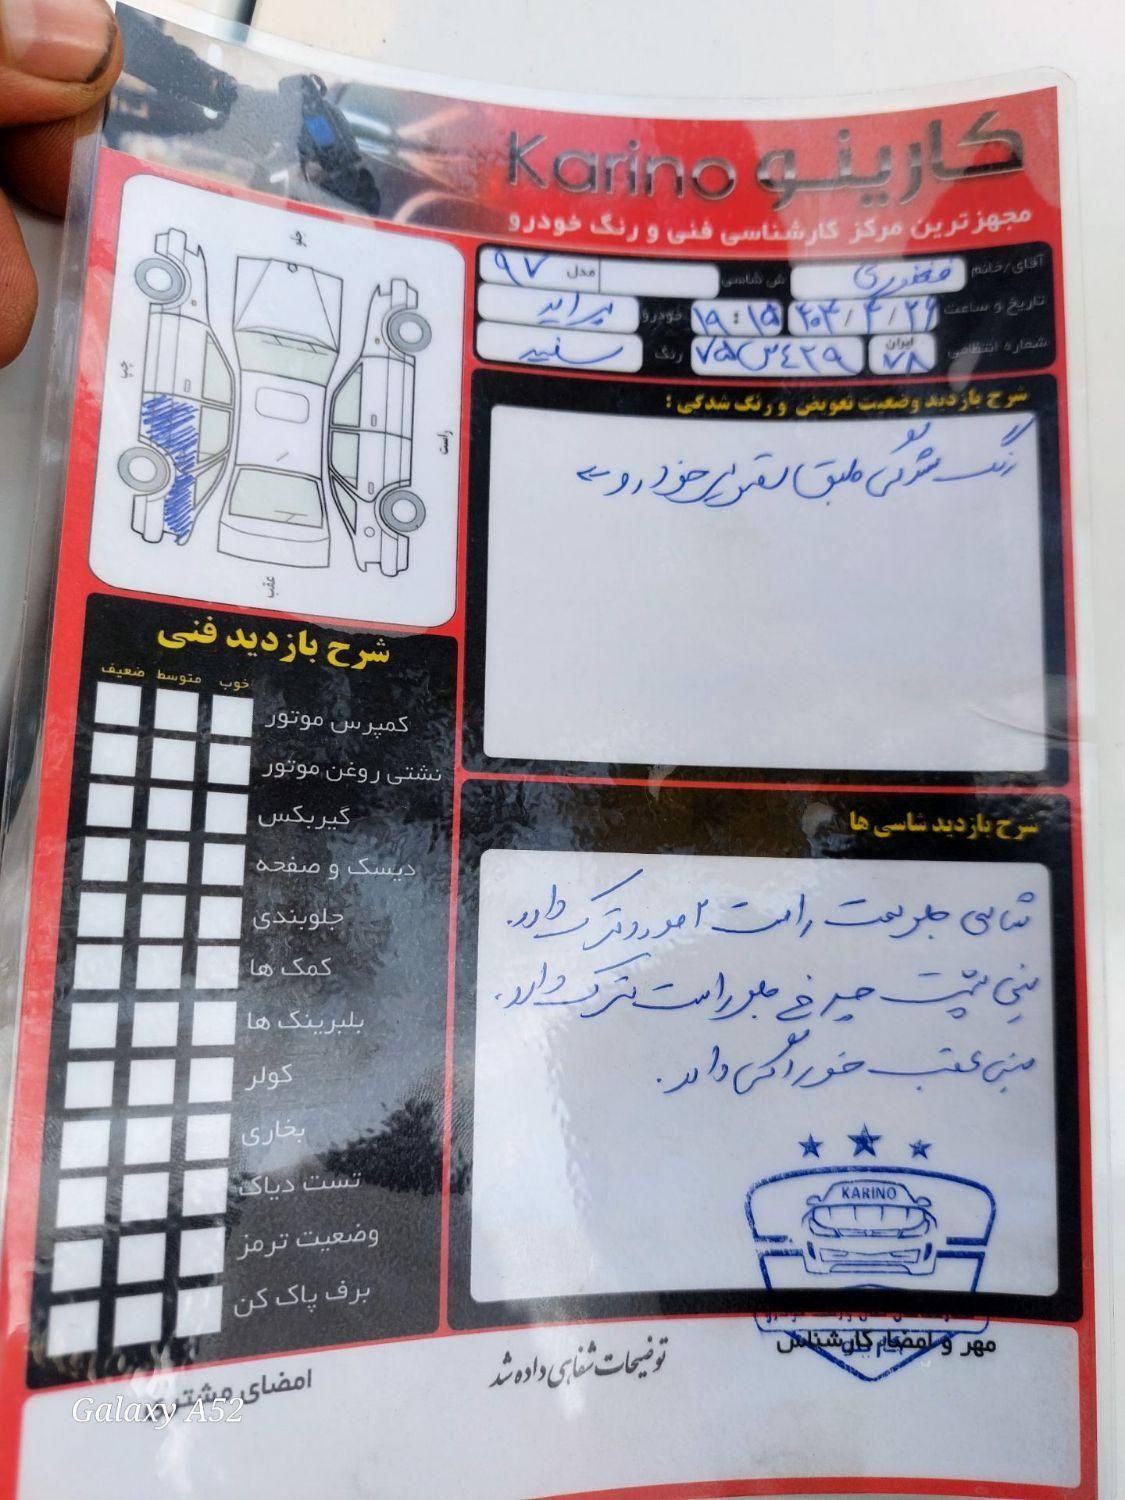 کارینو Karino
مجهزترین مرکز کارشناسی فنی و رنگ خودرو
آقای/خانم فغفوری ش شاسی مدل ۹۷
تاریخ و ساعت ۴۰۴/۴/۲۶ ۱۹:۱۵ خودرو پراید
شماره انتظامی ایران ۷۸ ۴۲۹س۷۵ رنگ سفید
جلو
چپ
راست
عقب
شرح بازدید وضعیت تعویض و رنگ شدگی :
رنگ شدگی طبق تصویر خودرو
شرح بازدید فنی
خوب متوسط ضعیف
کمپرس موتور
نشتی روغن موتور
گیربکس
دیسک و صفحه
جلوبندی
کمک ها
بلبرینک ها
کولر
بخاری
تست دیاک
وضعیت ترمز
برف پاک کن
شرح بازدید شاسی ها
شاسی جلو سمت راست ۲ مورد ترک دارد.
سینی پشت چرخ جلو راست ترک دارد.
سینی عقب خوردگی دارد.
KARINO
مهر و امضا کارشناس
توضیحات شفاهی داده شد
امضای مشتری
Galaxy A52